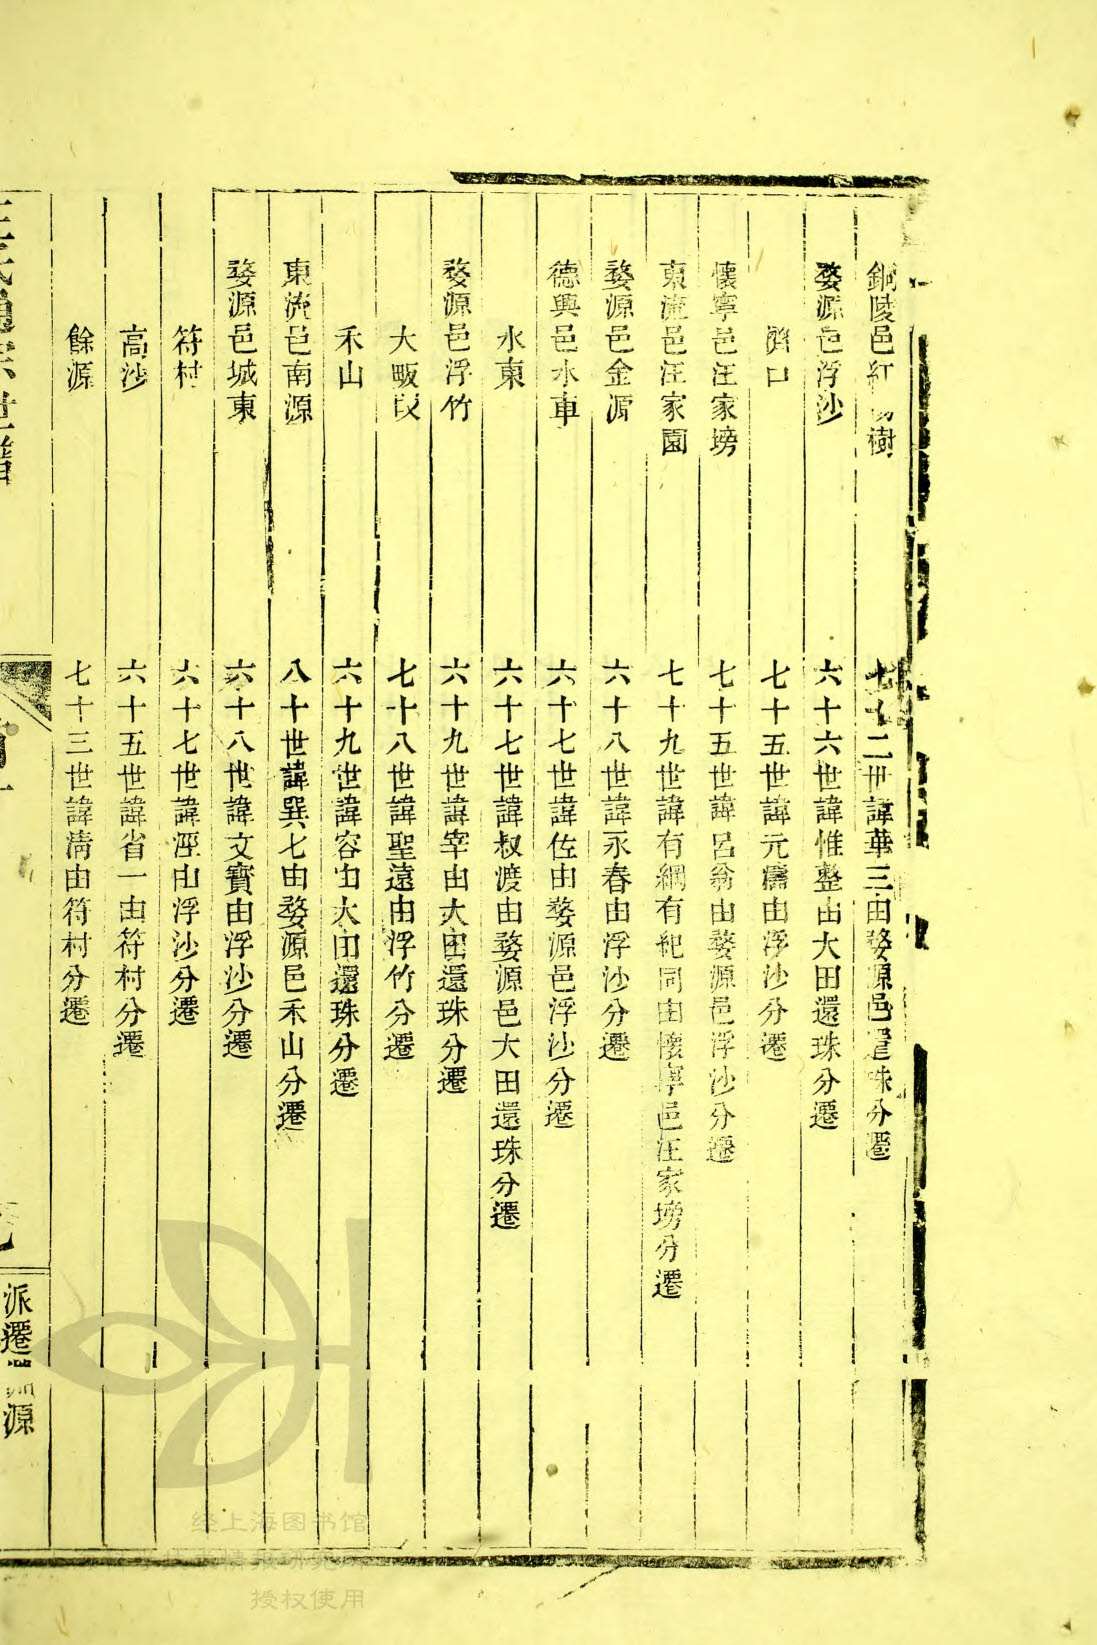 銅陵邑紅 樹 七十二世諱華三由婺源邑還珠分遷
婺源邑浮沙 六十六世諱惟整由大田還珠分遷
濟口 七十五世諱元 由浮沙分遷
懷寧邑汪家塝 七十五世諱呂翁由婺源邑浮沙分遷
東流邑汪家園 七十九世諱有綱有紀同由懷寧邑汪家塝分遷
婺源邑金源 六十八世諱永春由浮沙分遷
德興邑水車 六十七世諱佐由婺源邑浮沙分遷
水東 六十七世諱叔渡由婺源邑大田還珠分遷
婺源邑浮竹 六十九世諱宰由大田還珠分遷
大畈段 七十八世諱聖遠由浮竹分遷
禾山 六十九世諱容由大田還珠分遷
東流邑南源 八十世諱巽七由婺源邑禾山分遷
婺源邑城東 六十八世諱文寶由浮沙分遷
符村 六十七世諱涇由浮沙分遷
高沙 六十五世諱省一由符村分遷
餘源 七十三世諱清由符村分遷
派遷 源
经上海图书馆
授权使用